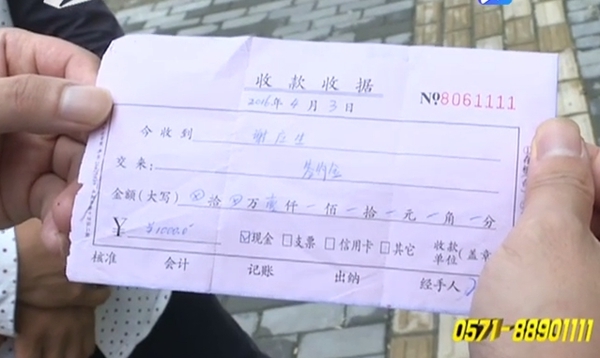 收款收据
2016年4月3日
№8061111
今收到 谢左生
交来:
金额(大写) ⊗拾⊗万壹仟一佰一拾一元一角一分
¥ ¥1000.0
☑现金 □支票 □信用卡 □其它 收款单位(盖章
核准 会计 记账 出纳 经手人
0571-88901111